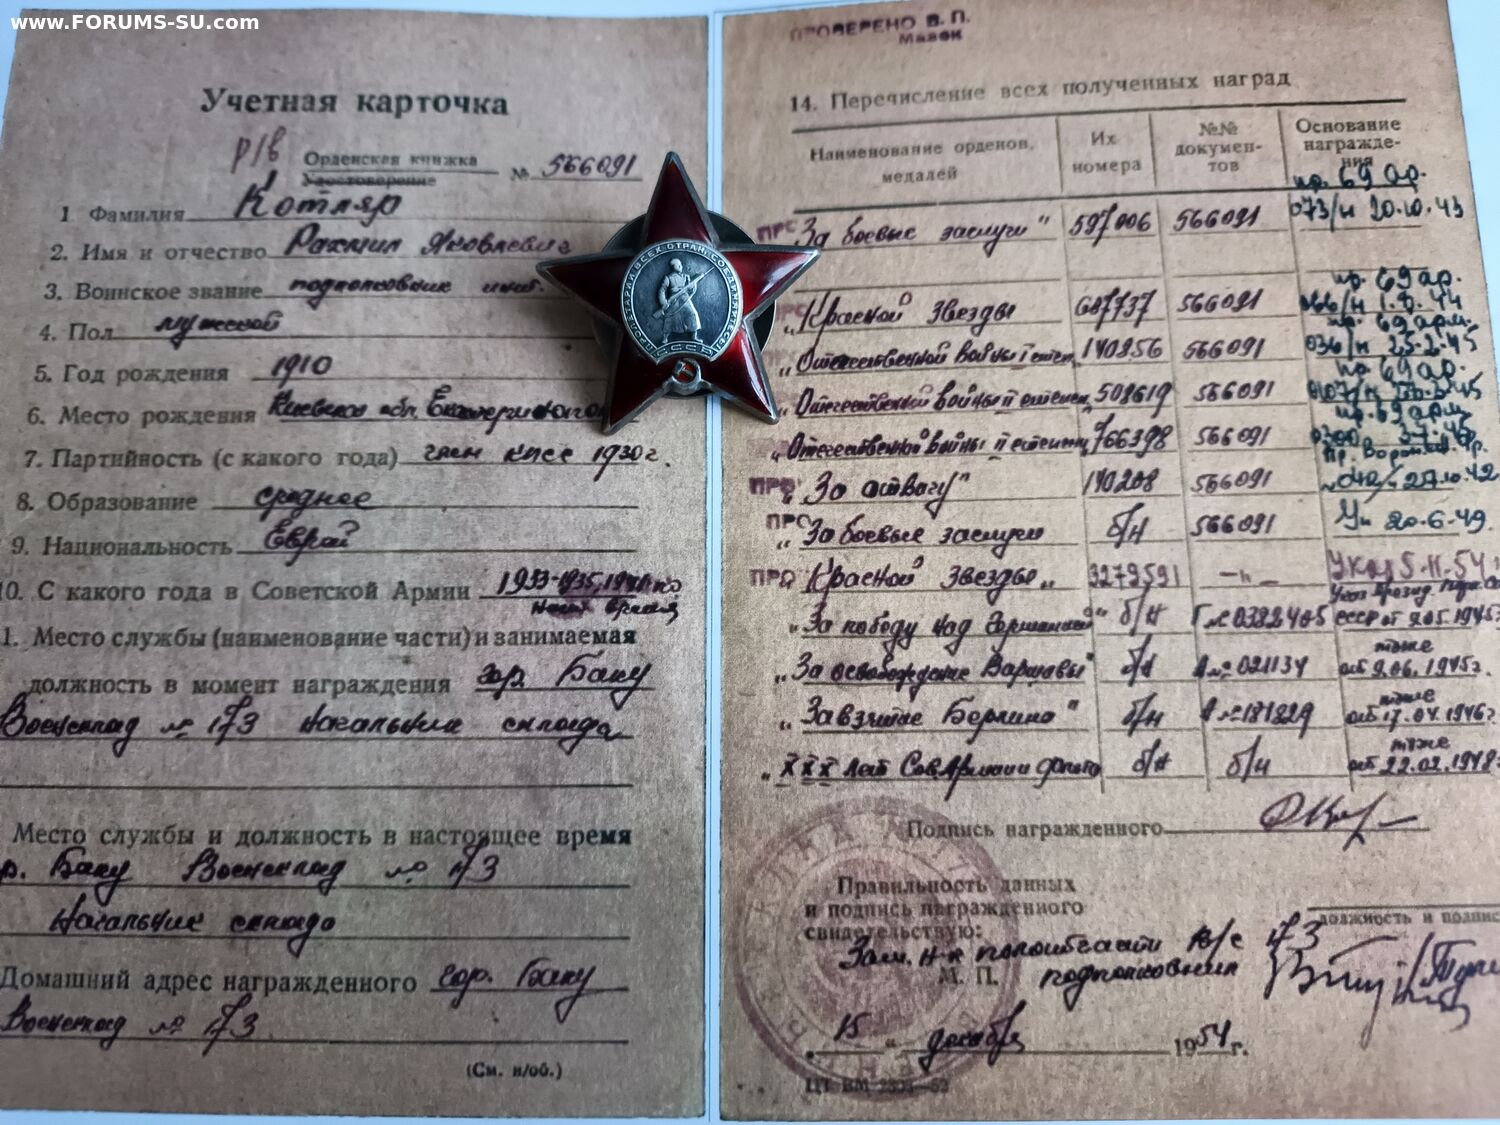 www.FORUMS-SU.com
Учетная карточка
р/в Орденская книжка
Удостоверение № 566091
1 Фамилия Котляр
2. Имя и отчество Рахмил Яковлевич
3. Воинское звание подполковник инт.
4. Пол мужской
5. Год рождения 1910
6. Место рождения Киевская обл.
7. Партийность (с какого года) член КПСС 1930 г.
8. Образование среднее
9. Национальность Еврей
10. С какого года в Советской Армии 1933-1935, 1941 по
наст. время
1. Место службы (наименование части) и занимаемая
должность в момент награждения гор. Баку
Военсклад № 173 Начальник склада
Место службы и должность в настоящее время
р. Баку Военсклад № 173
Начальник склада
Домашний адрес награжденного гор. Баку
Военсклад № 173
(См. н/об.)
ПРОЛЕТАРИИ ВСЕХ СТРАН, СОЕДИНЯЙТЕСЬ!
СССР
ПРОВЕРЕНО В. П.
Мазок
14. Перечисление всех полученных наград
Наименование орденов, медалей
Их номера
№№ докумен-тов
Основание награжде-ния
„За боевые заслуги" 597006 566091 пр. 69 ар. 073/н 20.10.43
„Красной Звезды 687737 566091 пр. 69 ар.
„Отечественной войны I степ. 140256 566091 пр. 69 арм.
„Отечественной войны II степен. 508619 566091 пр. 69 ар.
„Отечественной войны II степени 766398 566091 пр. 69 арм.
ПРО „За отвагу" 140208 566091
ПРО „За боевые заслуги б/н 566091 Ук 20-6-49.
ПРО „Красной Звезды„ 3279591 —„— Указ 5-11-54
„За победу над Германией" б/н Г № 0382405 СССР от 9.05.1945г
„За освобождение Варшавы" б/н А № 021134 тоже от 9.06.1945г.
„За взятие Берлина" б/н А № 181829 тоже
„XXX лет Сов Армии и флота б/н б/н тоже от 22.02.1948г
Подпись награжденного
Правильность данных
и подпись награжденного
свидетельствую:
должность и подпись
Зам. н-к по политчасти в/с 173
М. П. подполковник
15 " декабря 1954 г.